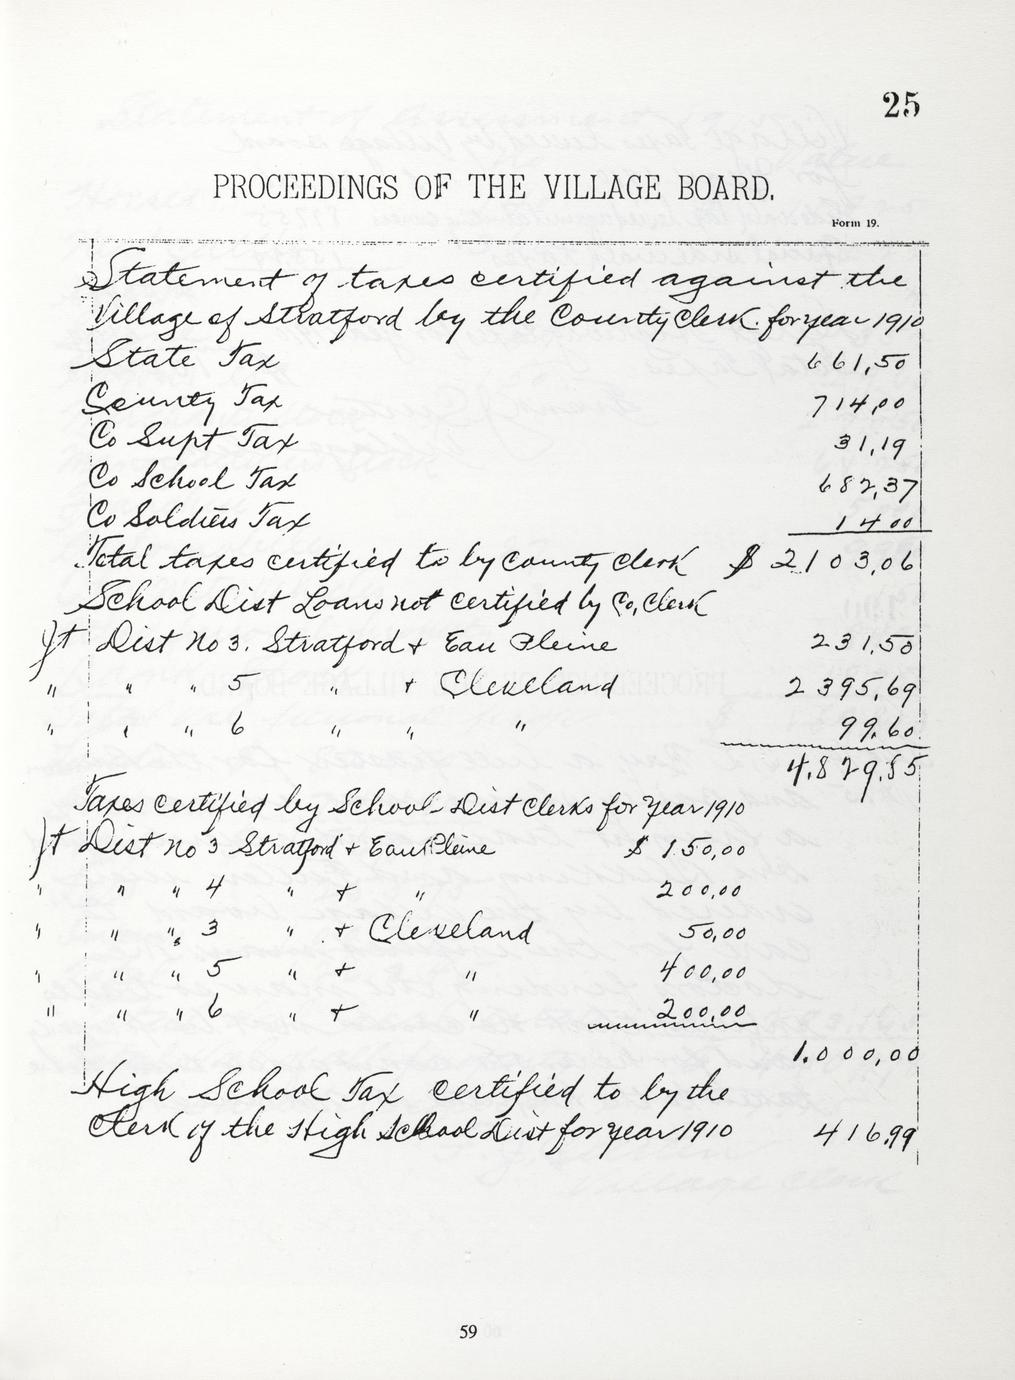 25
PROCEEDINGS OF THE VILLAGE BOARD.
Form 19.
Statement of taxes certified against the
Village of Stratford by the County Clerk for year 1910
State Tax 661,50
County Tax 714,00
Co Supt Tax 31,19
Co School Tax 682,37
Co Soldiers Tax 14 00
Total taxes certified to by County Clerk $ 2103,06
School Dist Loans not certified by Co, Clerk
Jt Dist No 3. Stratford + Eau Pleine 231,50
" " " 5 " + Cleveland 2395,69
" " " 6 " " " 99.60
4,829,85
Taxes certified by School Dist Clerks for Year 1910
Jt Dist no 3 Stratford + Eau Pleine $ 150,00
" " " 4 " + " 200,00
" " " 3 " + Cleveland 50,00
" " " 5 " + " 400,00
" " " 6 " + " 200,00
1.000,00
High School Tax certified to by the
Clerk of the High School Dist for year 1910 416,99
59